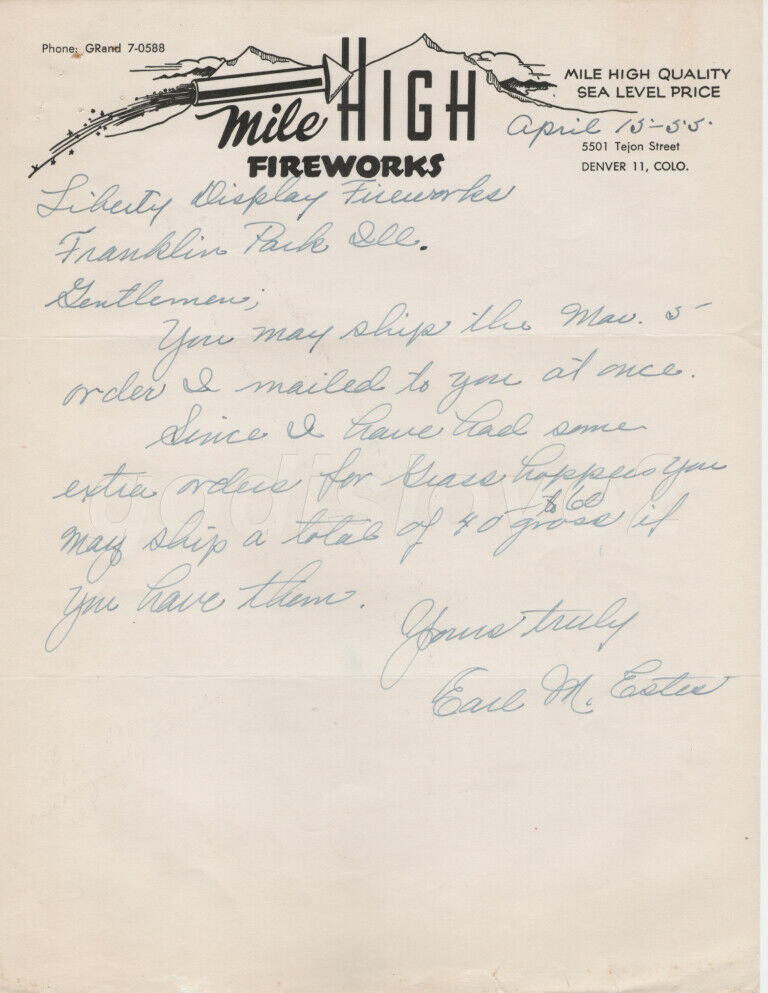 Phone: GRand 7-0588
Mile HIGH
FIREWORKS
MILE HIGH QUALITY
SEA LEVEL PRICE
April 15-55.
5501 Tejon Street
DENVER 11, COLO.
Liberty Display Fireworks
Franklin Park Ill.
Gentlemen;
You may ship the Mar. 5
order I mailed to you at once.
Since I have had some
extra orders for Grass hoppers you
to 60
may ship a total of 40 gross if
you have them.
Yours truly
Earl M. Estes